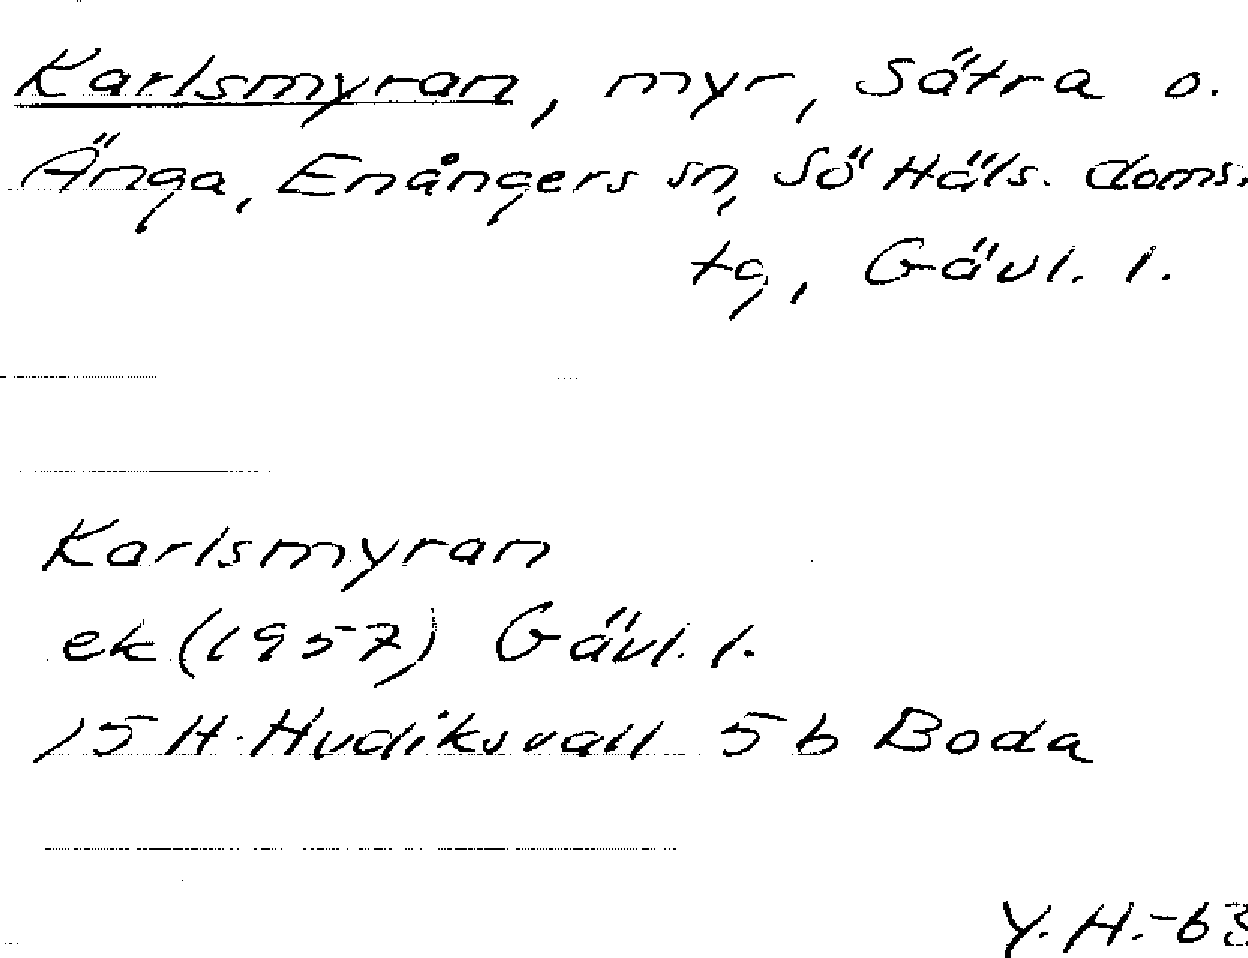 Karlsmyran, myr, Sätra o.
Änga, Enångers sn, Sö Häls. doms.
tg, Gävl. l.
Karlsmyran
ek (1957) Gävl. l.
15 H Hudiksvall 5 b Boda
Y. H. -63